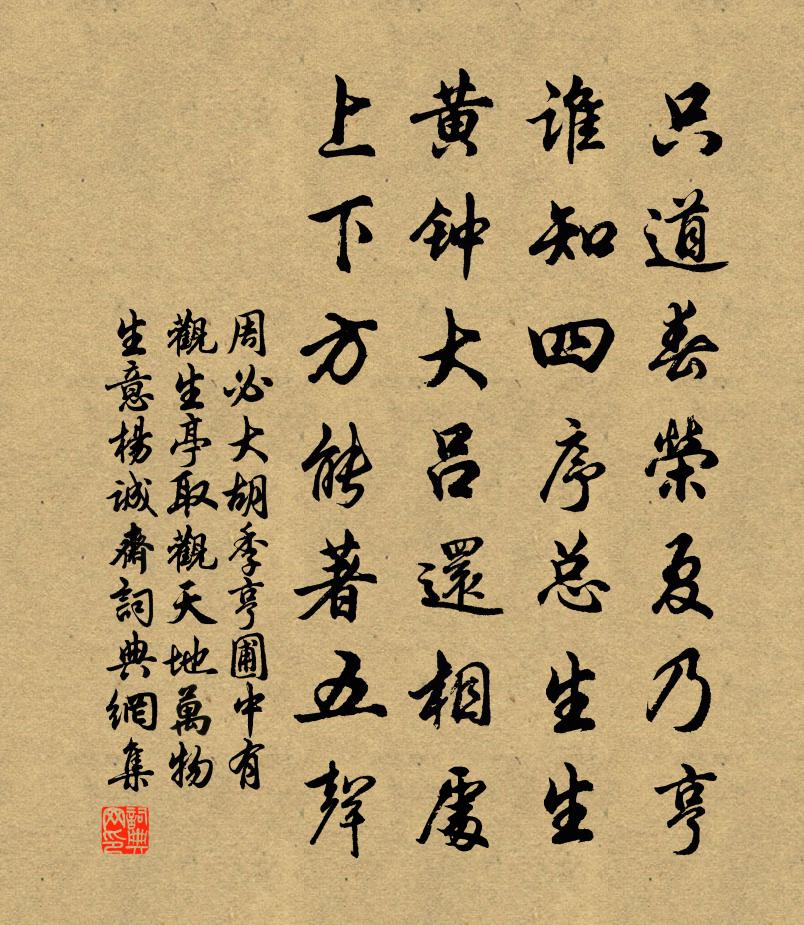 只道春榮夏乃亨
谁知四序总生生
黄钟大吕還相處
上下方能著五聲
周必大胡季亨圃中有
觀生亭取觀天地萬物
生意楊誠齋詞典網集
詞典网印